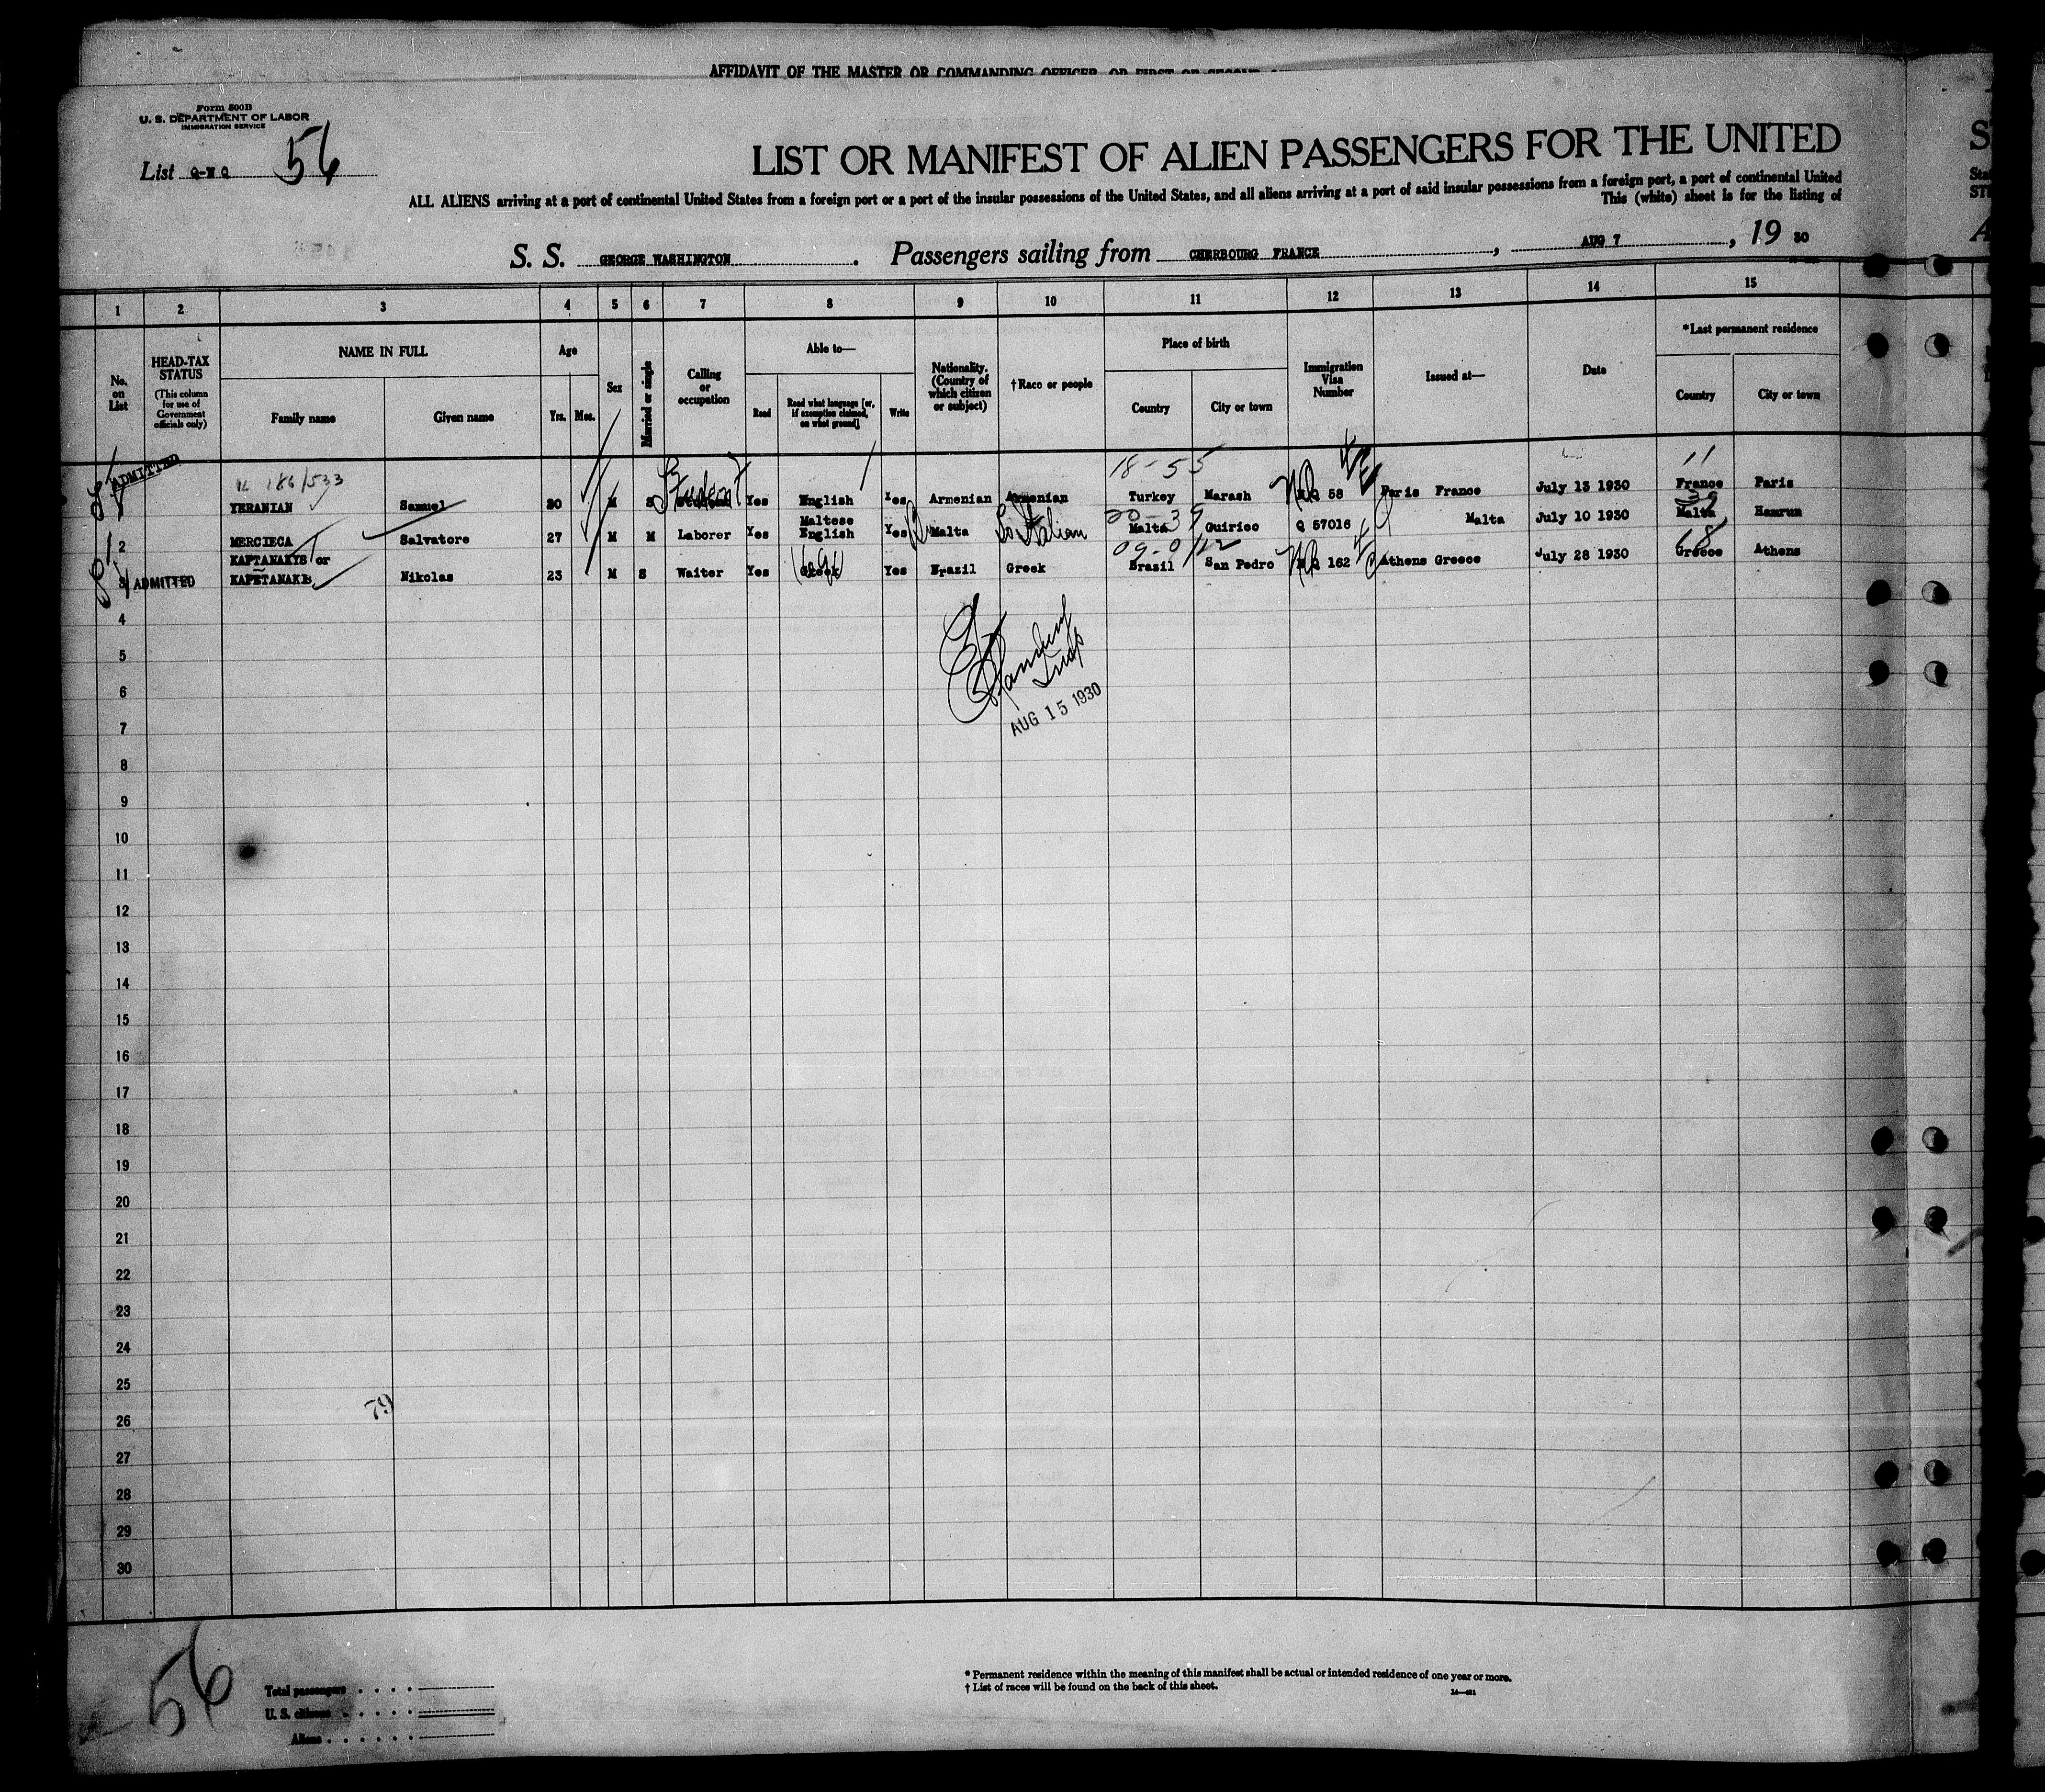 AFFIDAVIT OF THE MASTER OR COMMANDING OFFICER, OR FIRST OR SECOND
Form 500B
U. S. DEPARTMENT OF LABOR
IMMIGRATION SERVICE
List Q-NQ 56
LIST OR MANIFEST OF ALIEN PASSENGERS FOR THE UNITED
ALL ALIENS arriving at a port of continental United States from a foreign port or a port of the insular possessions of the United States, and all aliens arriving at a port of said insular possessions from a foreign port, a port of continental United
This (white) sheet is for the listing of
S. S. GEORGE WASHINGTON . Passengers sailing from CHERBOURG FRANCE , AUG 7 , 19 30
1 2 3 4 5 6 7 8 9 10 11 12 13 14 15
No. on List
HEAD-TAX STATUS
(This column for use of Government officials only)
NAME IN FULL
Family name Given name
Age
Yrs. Mos.
Sex
Married or single
Calling or occupation
Able to—
Read
Read what language [or, if exemption claimed, on what ground]
Write
Nationality. (Country of which citizen or subject)
†Race or people
Place of birth
Country City or town
Immigration Visa Number
Issued at—
Date
*Last permanent residence
Country City or town
ADMITTED 186/533 18-55 11
YERANIAN Samuel 30 M S Student Yes English Yes Armenian Armenian Turkey Marash NQ 58 Paris France July 13 1930 France Paris
Maltese 20-39 39
2 MERCIECA Salvatore 27 M M Laborer Yes English Yes Malta So Italian Malta Quirico Q 57016 Malta July 10 1930 Malta Hamrun
KAPTANAKYS or 09-0/22 18
3 ADMITTED KAPETANAKIS Nikolas 23 M S Waiter Yes Greek Yes Brazil Greek Brazil San Pedro NQ 162 Athens Greece July 28 1930 Greece Athens
4
5
6
Insp
AUG 15 1930
7
8
9
10
11
12
13
14
15
16
17
18
19
20
21
22
23
24
25
79
26
27
28
29
30
56
Total passengers
U. S. citizens
Aliens
* Permanent residence within the meaning of this manifest shall be actual or intended residence of one year or more.
† List of races will be found on the back of this sheet.